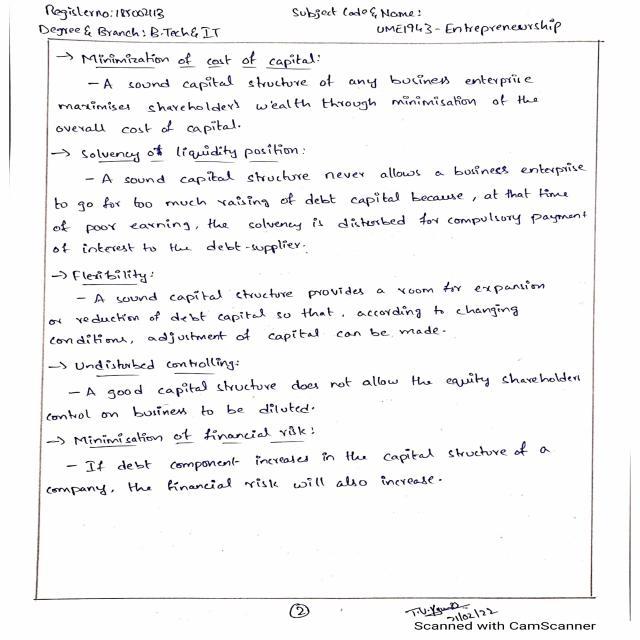 Register no: 185002113
Subject Code & Name:
Degree & Branch: B.Tech & IT
UME1943 - Entrepreneurship
→ Minimization of cost of capital:
- A sound capital structure of any business enterprise
maximises shareholders wealth through minimisation of the
overall cost of capital.
→ Solvency of liquidity position:
- A sound capital structure never allows a business enterprise
to go for too much raising of debt capital because, at that time
of poor earning, the solvency is disturbed for compulsory payment
of interest to the debt-supplier.
→ Flexibility:
- A sound capital structure provides a room for expansion
or reduction of debt capital so that, according to changing
conditions, adjustment of capital can be made.
→ Undisturbed controlling:
- A good capital structure does not allow the equity shareholders
control on business to be diluted.
→ Minimisation of financial risk:
- If debt component increases in the capital structure of a
company, the financial risk will also increase.
2
21/02/22
Scanned with CamScanner